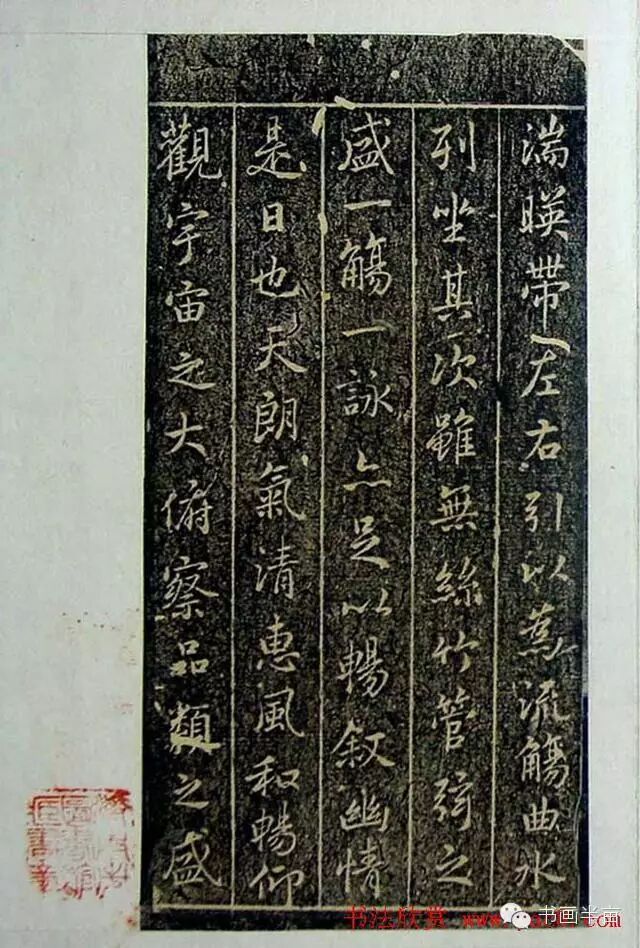 湍暎帶左右引以為流觴曲水
列坐其次雖無絲竹管弦之
盛一觴一詠亦足以暢叙幽情
是日也天朗氣清惠風和暢仰
觀宇宙之大俯察品類之盛
书法欣赏
书画半亩